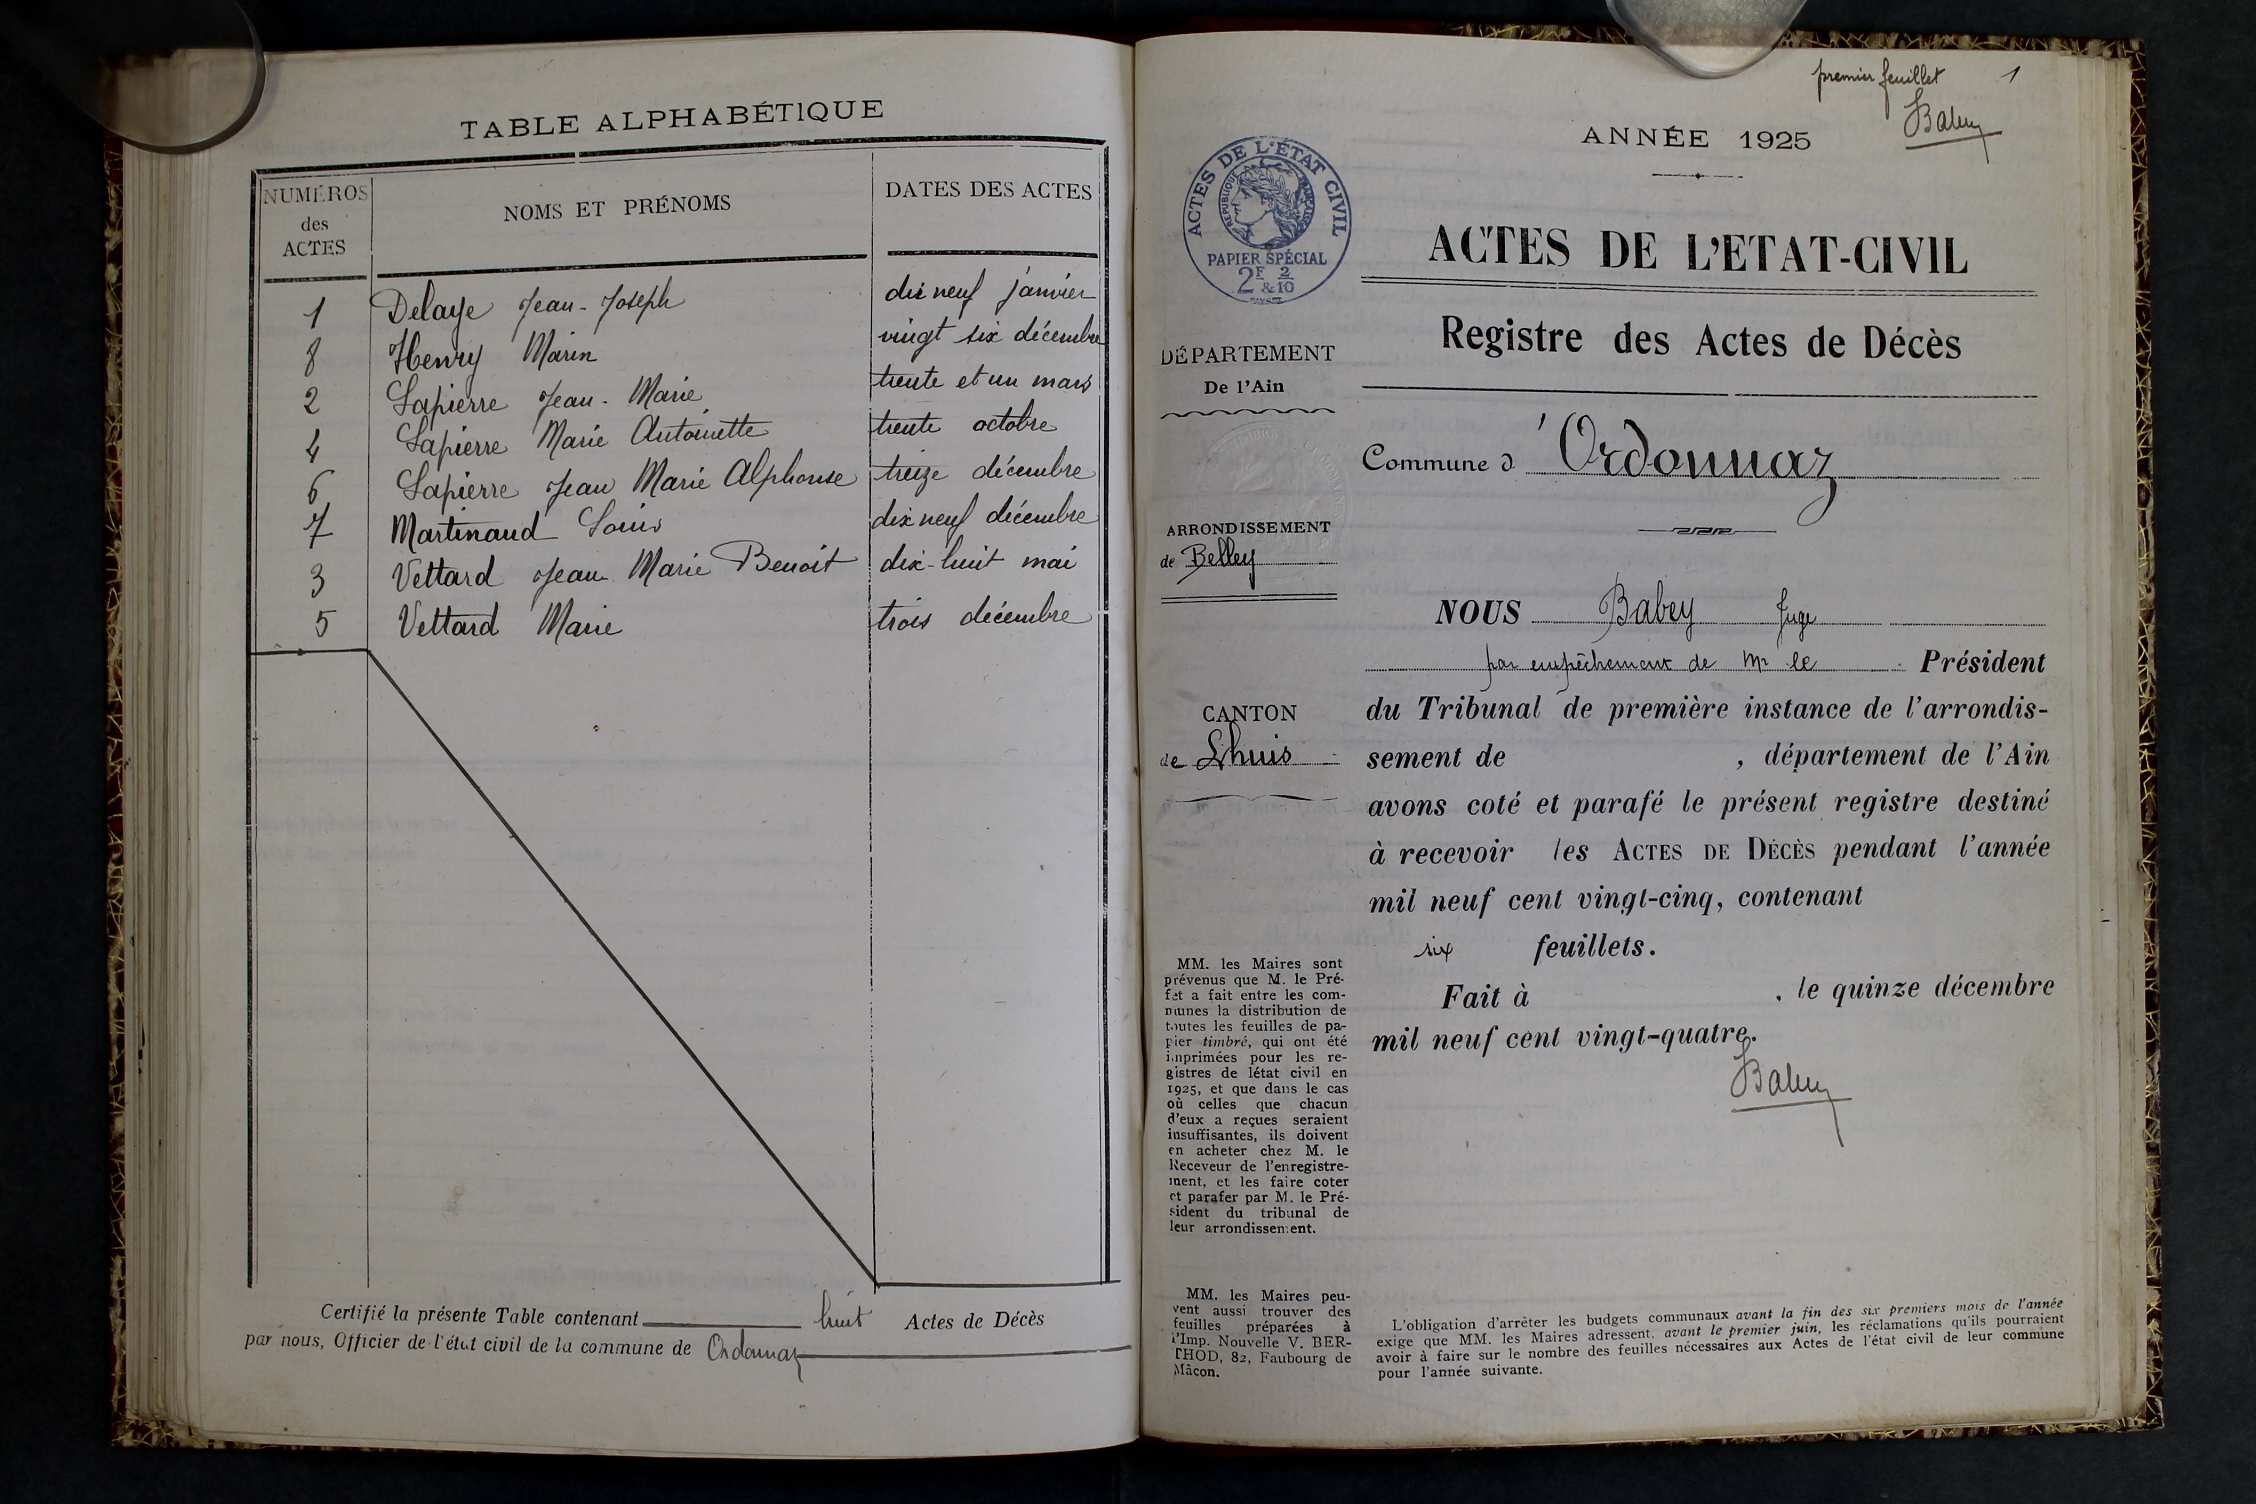 TABLE ALPHABÉTIQUE
NUMÉROS des ACTES
NOMS ET PRÉNOMS
DATES DES ACTES
1 Delaye Jean-Joseph dix neuf janvier
8 Henry Marin vingt six décembre
2 Lapierre Jean-Marie trente et un mars
4 Lapierre Marie Antoinette trente octobre
6 Lapierre Jean Marie Alphonse treize décembre
7 Martinaud Louis dix neuf décembre
3 Vettard Jean Marie Benoit dix-huit mai
5 Vettard Marie trois décembre
Certifié la présente Table contenant huit Actes de Décès
par nous, Officier de l'état civil de la commune de Ordonnaz
premier feuillet 1
Babey
ANNÉE 1925
ACTES DE L'ÉTAT CIVIL
RÉPUBLIQUE FRANÇAISE
PAPIER SPÉCIAL
2F & 2/10
ACTES DE L'ETAT-CIVIL
Registre des Actes de Décès
DÉPARTEMENT
De l'Ain
Commune d'Ordonnaz
ARRONDISSEMENT
de Belley
CANTON
de Lhuis
NOUS Babey Juge
par empêchement de Mr le Président
du Tribunal de première instance de l'arrondis-
sement de , département de l'Ain
avons coté et parafé le présent registre destiné
à recevoir les ACTES DE DÉCÈS pendant l'année
mil neuf cent vingt-cinq, contenant
six feuillets.
Fait à , le quinze décembre
mil neuf cent vingt-quatre.
Babey
MM. les Maires sont
prévenus que M. le Pré-
fet a fait entre les com-
munes la distribution de
toutes les feuilles de pa-
pier timbré, qui ont été
imprimées pour les re-
gistres de létat civil en
1925, et que dans le cas
où celles que chacun
d'eux a reçues seraient
insuffisantes, ils doivent
en acheter chez M. le
Receveur de l'enregistre-
ment, et les faire coter
et parafer par M. le Pré-
sident du tribunal de
leur arrondissement.
MM. les Maires peu-
vent aussi trouver des
feuilles préparées à
l'Imp. Nouvelle V. BER-
THOD, 82, Faubourg de
Mâcon.
L'obligation d'arrêter les budgets communaux avant la fin des six premiers mois de l'année
exige que MM. les Maires adressent, avant le premier juin, les réclamations qu'ils pourraient
avoir à faire sur le nombre des feuilles nécessaires aux Actes de l'état civil de leur commune
pour l'année suivante.